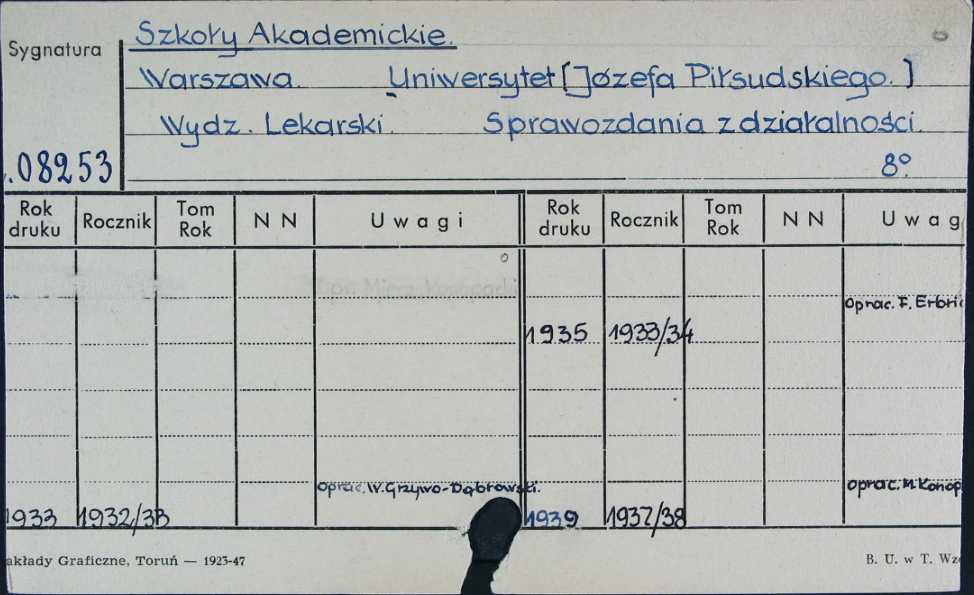 Szkoły Akademickie.
Sygnatura
Warszawa. Uniwersytet [Józefa Piłsudskiego.]
Wydz. Lekarski. Sprawozdania z działalności.
.08253 8º
Rok druku Rocznik Tom Rok N N Uwagi Rok druku Rocznik Tom Rok N N Uwag
Oprac. F. Erbric
1935 1933/34
Oprac. W. Grzywo-Dąbrowski. Oprac. M. Konop
1933 1932/33 1939 1937/38
akłady Graficzne, Toruń — 1923-47 B. U. w T. Wzó